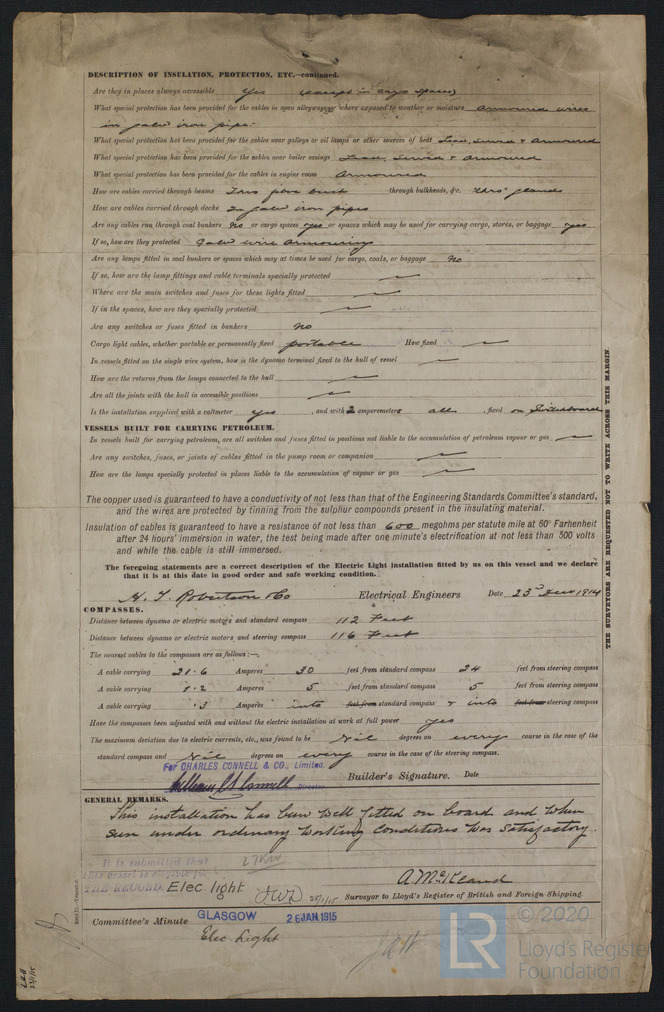 DESCRIPTION OF INSULATION, PROTECTION, ETC.—continued.
Are they in places always accessible Yes (except in cargo spaces)
What special protection has been provided for the cables in open alleyways or where exposed to weather or moisture Armoured wires
in galvd iron pipe.
What special protection has been provided for the cables near galleys or oil lamps or other sources of heat Lead, served & Armoured
What special protection has been provided for the cables near boiler casings Lead, served & Armoured
What special protection has been provided for the cables in engine room Armoured
How are cables carried through beams Thro' fibre bush through bulkheads, &c. Thro' glands
How are cables carried through decks In galvd iron pipes
Are any cables run through coal bunkers No or cargo spaces yes or spaces which may be used for carrying cargo, stores, or baggage yes
If so, how are they protected Galvd wire armouring
Are any lamps fitted in coal bunkers or spaces which may at times be used for cargo, coals, or baggage No
If so, how are the lamp fittings and cable terminals specially protected
Where are the main switches and fuses for these lights fitted
If in the spaces, how are they specially protected
Are any switches or fuses fitted in bunkers no
Cargo light cables, whether portable or permanently fixed portable How fixed
In vessels fitted on the single wire system, how is the dynamo terminal fixed to the hull of vessel
How are the returns from the lamps connected to the hull
Are all the joints with the hull in accessible positions
Is the installation supplied with a voltmeter yes, and with 2 amperemeters all, fixed on Switchboard
VESSELS BUILT FOR CARRYING PETROLEUM.
In vessels built for carrying petroleum, are all switches and fuses fitted in positions not liable to the accumulation of petroleum vapour or gas
Are any switches, fuses, or joints of cables fitted in the pump room or companion
How are the lamps specially protected in places liable to the accumulation of vapour or gas
The copper used is guaranteed to have a conductivity of not less than that of the Engineering Standards Committee's standard,
and the wires are protected by tinning from the sulphur compounds present in the insulating material.
Insulation of cables is guaranteed to have a resistance of not less than 600 megohms per statute mile at 60° Farhenheit
after 24 hours' immersion in water, the test being made after one minute's electrification at not less than 500 volts
and while the cable is still immersed.
The foregoing statements are a correct description of the Electric Light installation fitted by us on this vessel and we declare
that it is at this date in good order and safe working condition.
H. T. Robertson & Co Electrical Engineers Date 23d Dec 1914
COMPASSES.
Distance between dynamo or electric motors and standard compass 112 Feet
Distance between dynamo or electric motors and steering compass 116 Feet
The nearest cables to the compasses are as follows:—
A cable carrying 21.6 Amperes 30 feet from standard compass 24 feet from steering compass
A cable carrying 1.2 Amperes 5 feet from standard compass 5 feet from steering compass
A cable carrying .3 Amperes into feet from standard compass & into feet from steering compass
Have the compasses been adjusted with and without the electric installation at work at full power yes
The maximum deviation due to electric currents, etc., was found to be Nil degrees on every course in the case of the
standard compass and Nil degrees on every course in the case of the steering compass.
For CHARLES CONNELL & CO., Limited.
William C. Connell Director Builder's Signature. Date
GENERAL REMARKS.
This installation has been well fitted on board and when
seen under ordinary working conditions was satisfactory.
It is submitted that
this vessel is eligible for
THE RECORD. Elec. light JWD 25/1/15
A. McKeand
Surveyor to Lloyd's Register of British and Foreign Shipping.
Committee's Minute GLASGOW 26 JAN. 1915
Elec Light
THE SURVEYORS ARE REQUESTED NOT TO WRITE ACROSS THIS MARGIN.
23/1/15
© 2020
LR
Lloyd's Register
Foundation